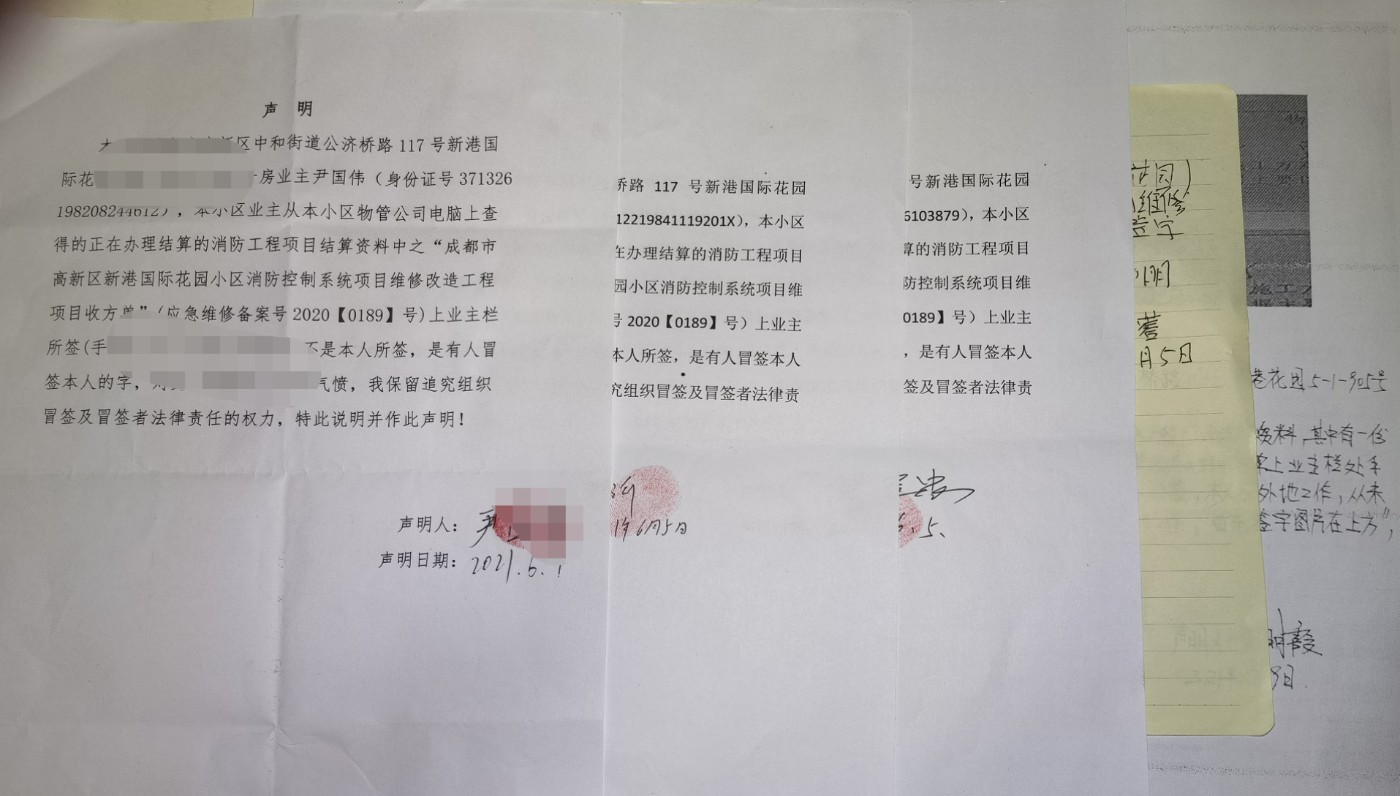 声 明
区中和街道公济桥路 117 号新港国
际花 房业主尹国伟（身份证号 371326
198208244612），本小区业主从本小区物管公司电脑上查
得的正在办理结算的消防工程项目结算资料中之“成都市
高新区新港国际花园小区消防控制系统项目维修改造工程
项目收方单”(应急维修备案号 2020【0189】号)上业主栏
所签(手 不是本人所签，是有人冒
签本人的字， 气愤，我保留追究组织
冒签及冒签者法律责任的权力，特此说明并作此声明！
声明人：尹
声明日期：2021.6.1
桥路 117 号新港国际花园
12219841119201X），本小区
在办理结算的消防工程项目
园小区消防控制系统项目维
号 2020【0189】号）上业主
本人所签，是有人冒签本人
究组织冒签及冒签者法律责
年6月5日
号新港国际花园
6103879），本小区
算的消防工程项目
防控制系统项目维
0189】号）上业主
，是有人冒签本人
签及冒签者法律责
.5.
花园)
维修
签字
明
月5日
港花园5-1-905号
资料,其中有一份
上业主栏处手
外地工作,从未
签字图片在上方"，
明霞
9日.